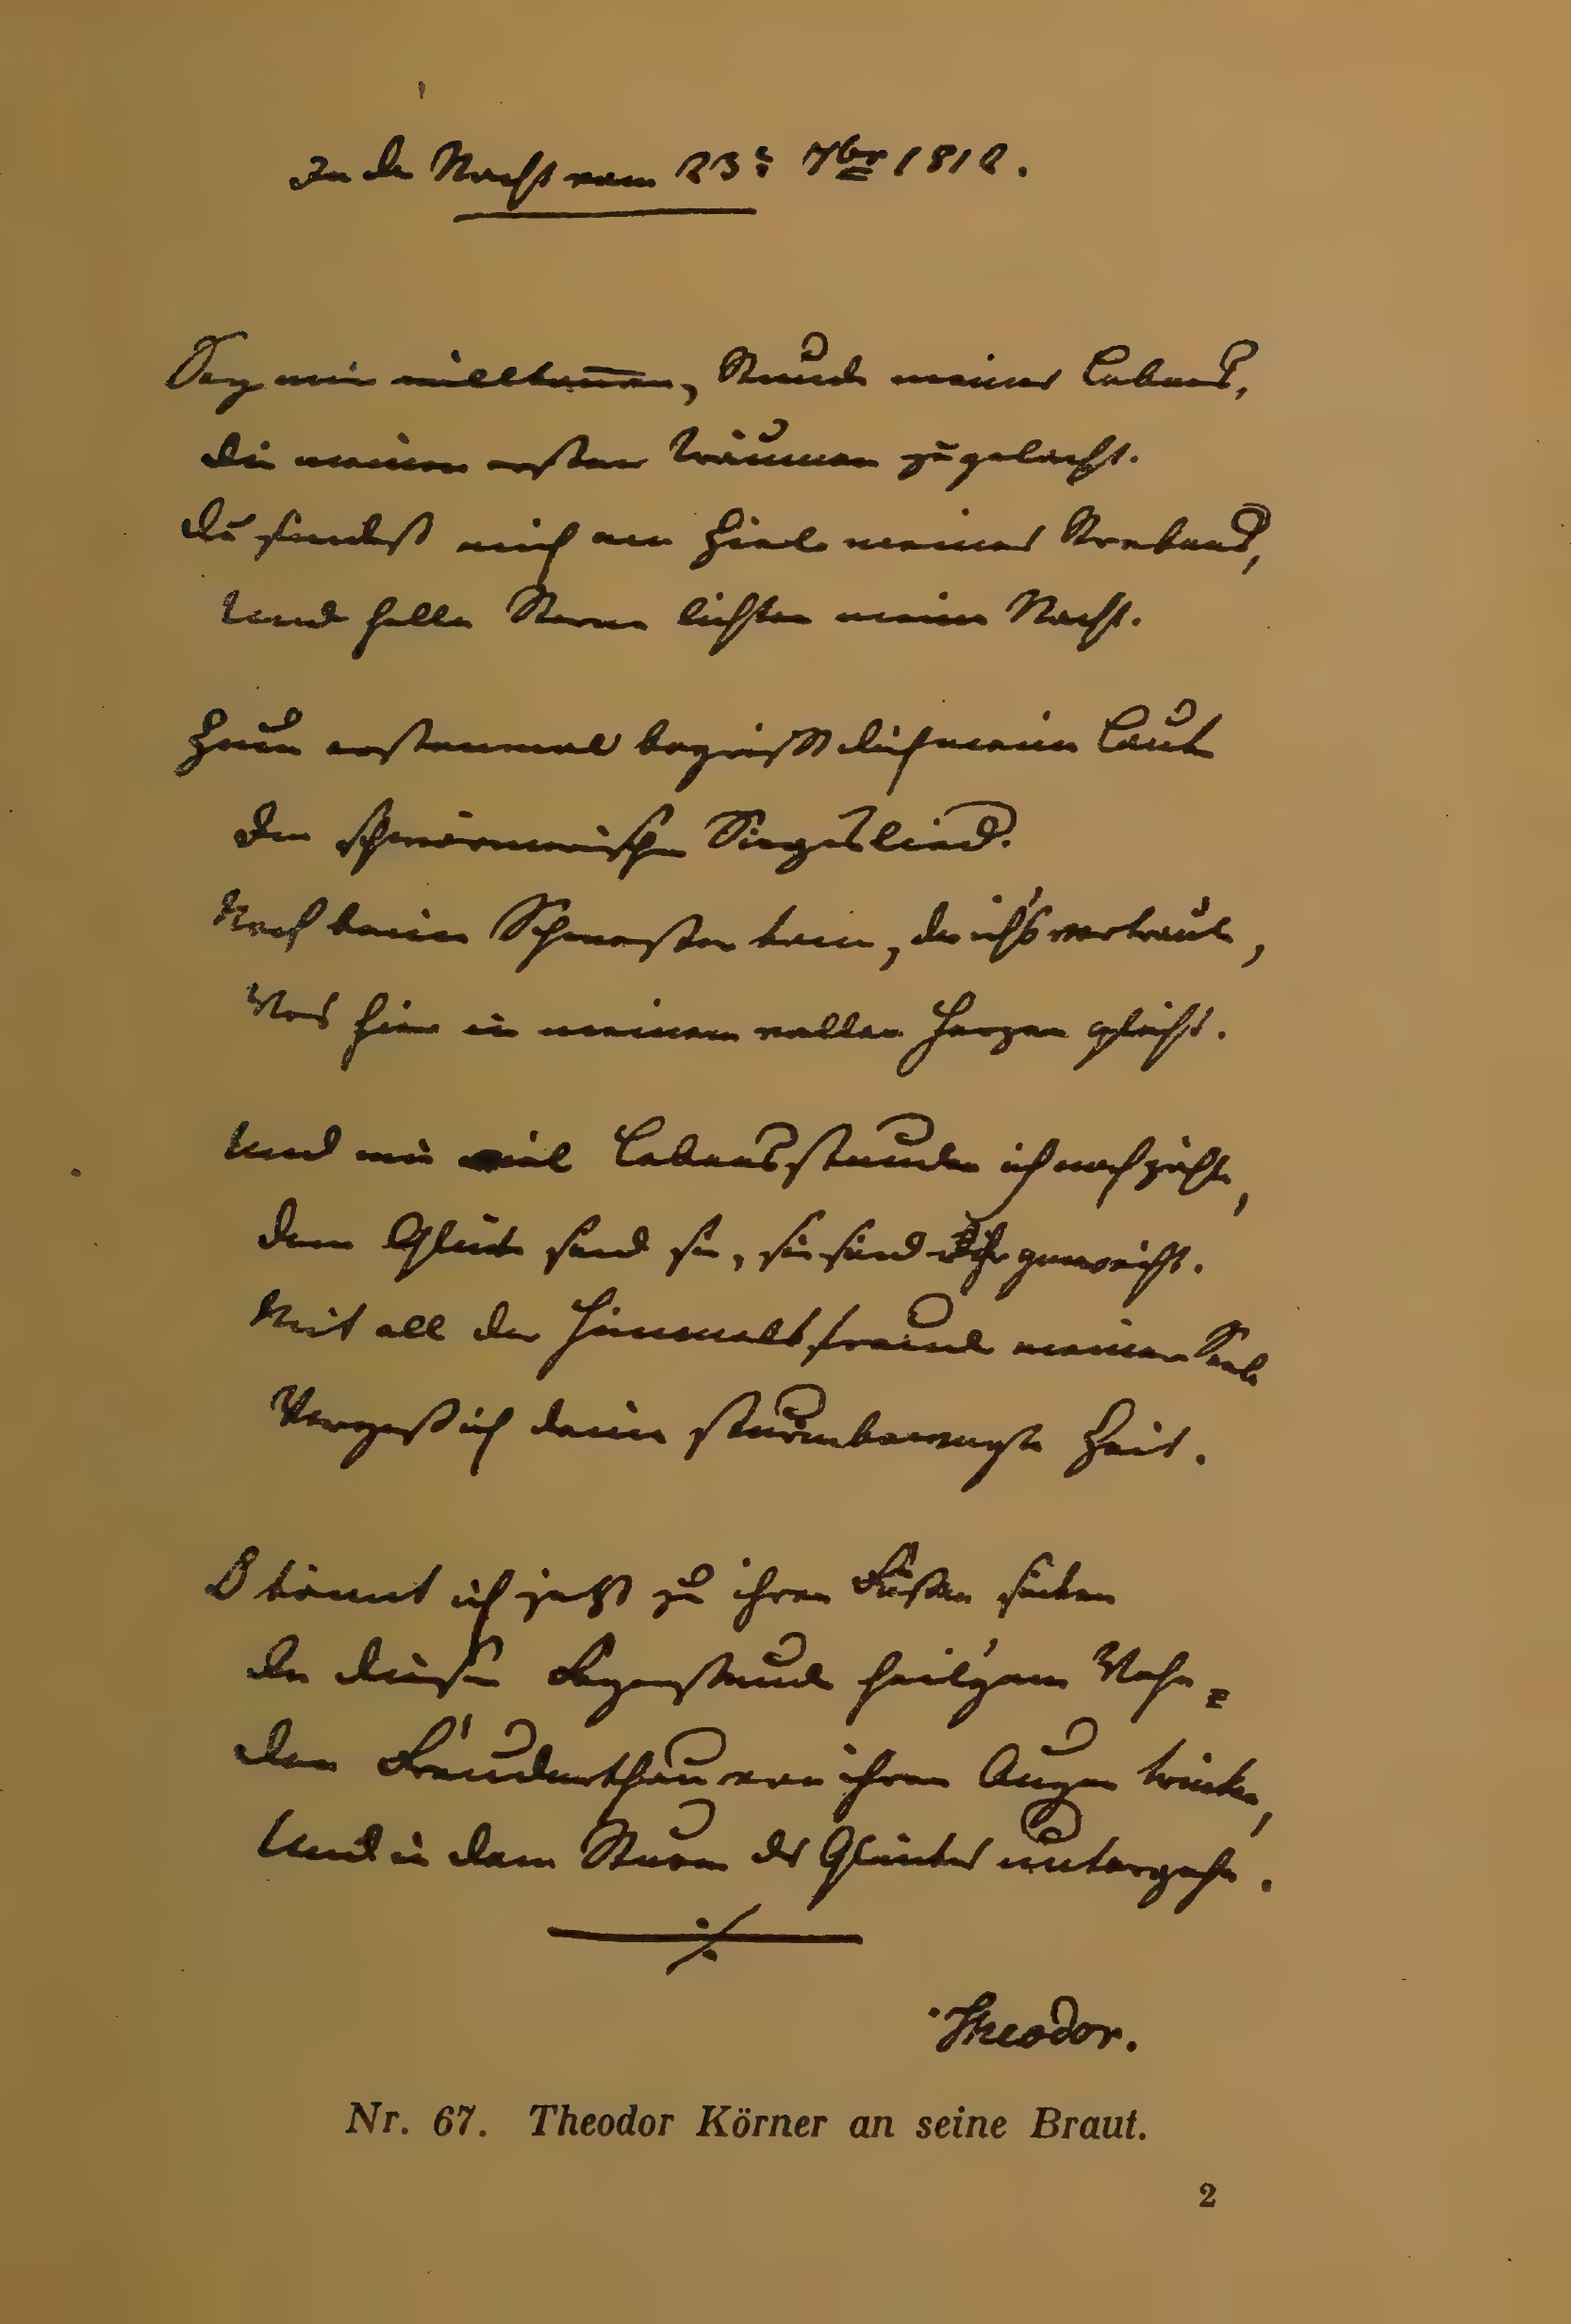 In der Nacht vom 23: 7br 1812.
Sey mir willkom̅en, Stunde meines Lebens,
Die meinen ersten Träumen zugelacht.
Du fandest mich am Ziele meines Strebens,
Und helle Sterne lichten meine Nacht.
Zum erstenmal begrüßt dich meine Laute
Den schwärmerischen Siegeslied.
Noch keiner Schwester kam, der ich's vertraute,
Was hier in meinem vollen Herzen glüht.
Und wie viel Lebensstunden ich noch zähle,
Dem Glücke sind sie, sie sind ihr geweiht.
Mit all der Himmelsfreude meiner Seele
Vergeß ich deine sturmbewegte Zeit.
O könnt ich jetzt zu ihren Füßen sinken
In dieser Segensstunde heil'gem Wehn,
Den Freudenthau von ihren Augen trinken,
Und in dem Sturm des Glückes untergehn.
Theodor.
Nr. 67. Theodor Körner an seine Braut.
2